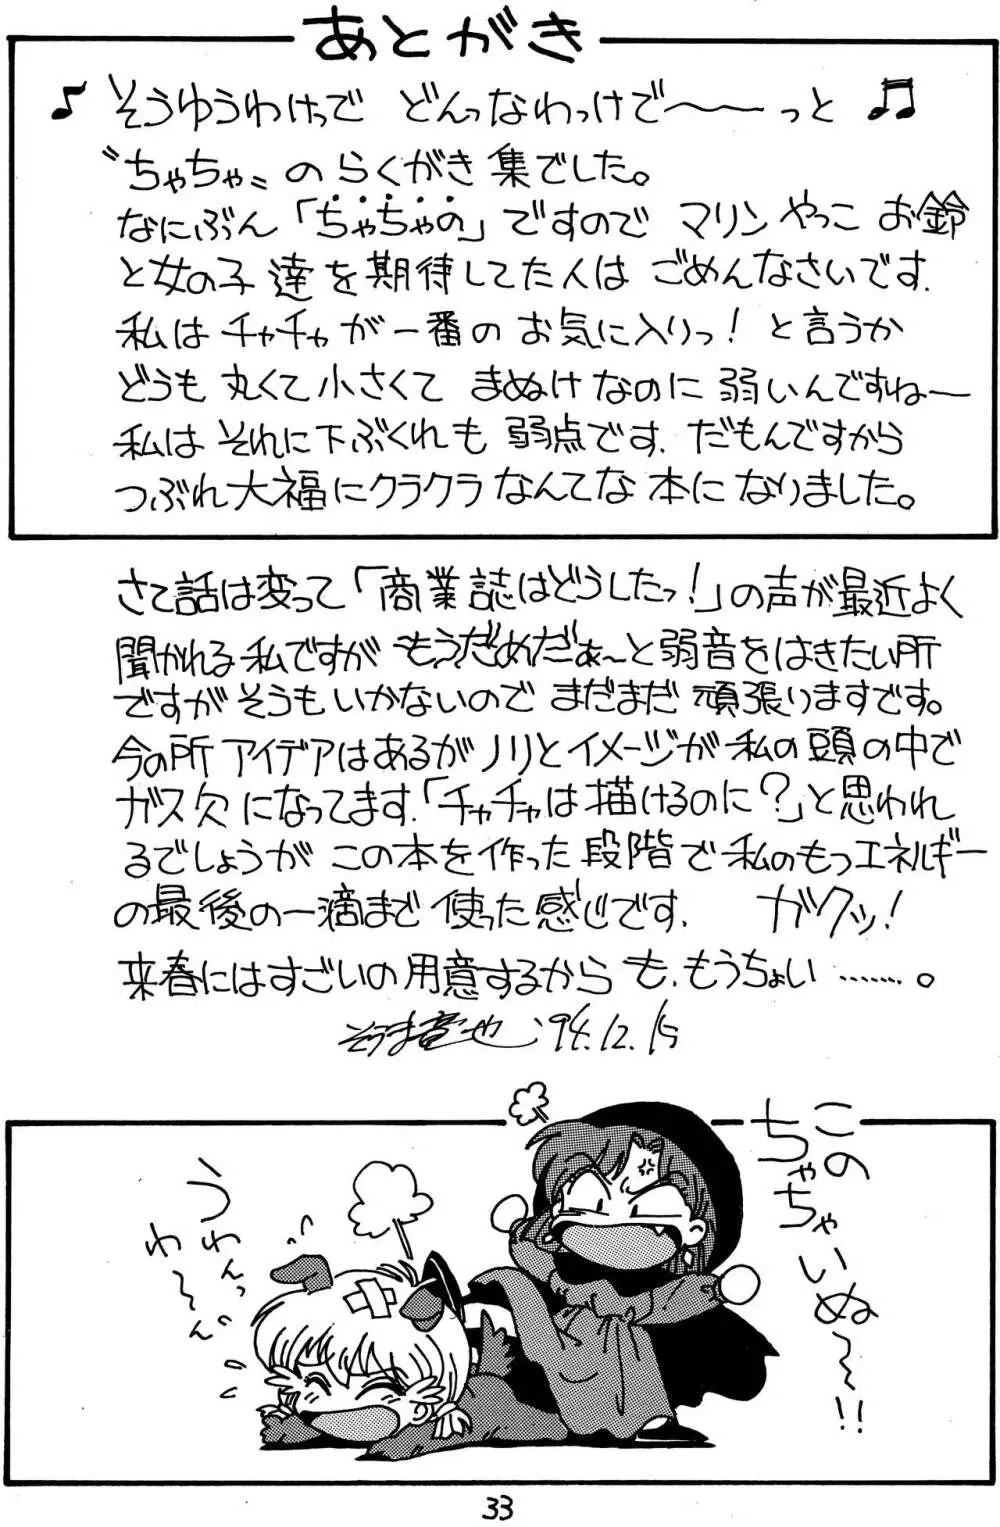 あとがき
♪ そうゆうわけっで どんっなわっけで〜〜っと ♫
〝ちゃちゃ〟のらくがき集でした。
なにぶん「ちゃちゃの」ですので マリン やっこ お鈴
と女の子達を期待してた人は ごめんなさいです.
私はチャチャが一番の お気に入りっ! と言うか
どうも 丸くて小さくて まぬけなのに弱いんですね〜
私は それに下ぶくれも 弱点です. だもんですから
つぶれ大福にクラクラなんてな 本になりました。
さて話は変って「商業誌はどうしたっ!」の声が最近よく
聞かれる私ですが もうだめだぁ〜と弱音をはきたい所
ですが そうもいかないので まだまだ 頑張りますです。
今の所 アイデアはあるがノリとイメージが 私の頭の中で
ガス欠になってます.「チャチャは描けるのに?」と思われ
るでしょうが この本を作った段階で 私のもつエネルギー
の最後の一滴まで 使った感じです. ガクッ!
来春にはすごいの用意するから も、もうちょい………。
そうま竜也 '94.12.15
このちゃちゃいぬ〜〜!!
うわんっ
わ〜〜ん
33